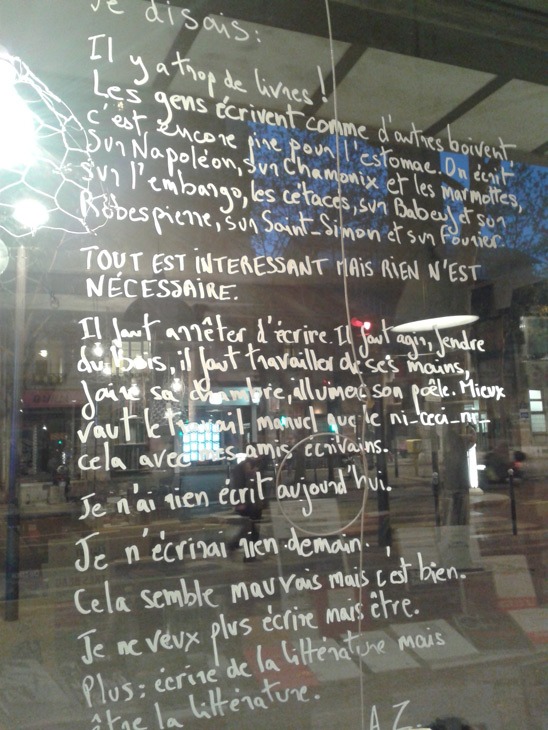 Je disais:
Il y a trop de livres !
Les gens écrivent comme d'autres boivent,
c'est encore pire pour l'estomac. On écrit
sur Napoléon, sur Chamonix et les marmottes,
sur l'embargo, les cétacés, sur Babeuf et sur
Robespierre, sur Saint-Simon et sur Fourier.
TOUT EST INTERESSANT MAIS RIEN N'EST
NÉCESSAIRE.
Il faut arrêter d'écrire. Il faut agir, fendre
du bois, il faut travailler de ses mains,
faire sa chambre, allumer son poêle. Mieux
vaut le travail manuel que le ni-ceci-ni-
cela avec mes amis écrivains.
Je n'ai rien écrit aujourd'hui.
Je n'écrirai rien demain.
Cela semble mauvais mais c'est bien.
Je ne veux plus écrire mais être.
Plus: écrire de la littérature mais
être la littérature.
A Z.